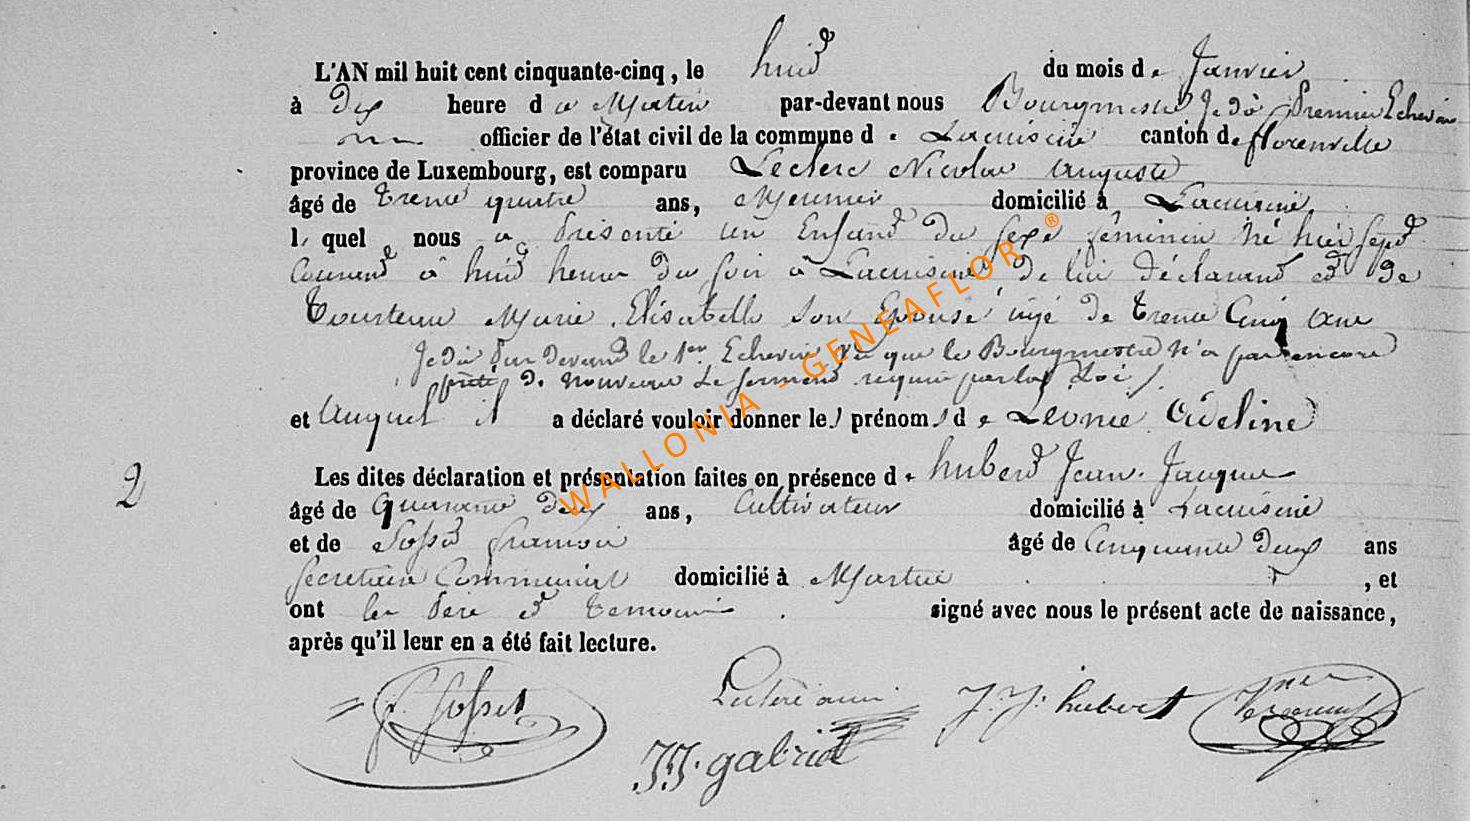 L'AN mil huit cent cinquante-cinq, le huit du mois de Janvier
à dix heure du Matin par-devant nous Bourgmestre Je dis Premier Echevin
officier de l'état civil de la commune de Lacuisine canton de florenville
province de Luxembourg, est comparu Leclerc Nicolas Auguste
âgé de trente quatre ans, Meunier domicilié à Lacuisine
lequel nous a présenté un Enfant du sexe féminin né hier sept
Courant à huit heures du soir à Lacuisine de lui déclarant et de
Marie Elisabeth son Epouse âgé de trente Cinq ans
Je dis par devant le 1er Echevin vu que le Bourgmestre n'a pas encore
prêté de nouveau le serment requis par la Loi
et Auquel il a déclaré vouloir donner les prénoms de Léonie Adeline
2
Les dites déclaration et présentation faites en présence de hubert Jean Jacques
âgé de Quarante deux ans, Cultivateur domicilié à Lacuisine
et de Sosset François âgé de Cinquante deux ans
Secrétaire Communal domicilié à Martué, et
ont les père et témoins signé avec nous le présent acte de naissance,
après qu'il leur en a été fait lecture.
f. Sosset
J. J. hubert
JJ. gabriel
WALLONIA - GENEAFLOR ®